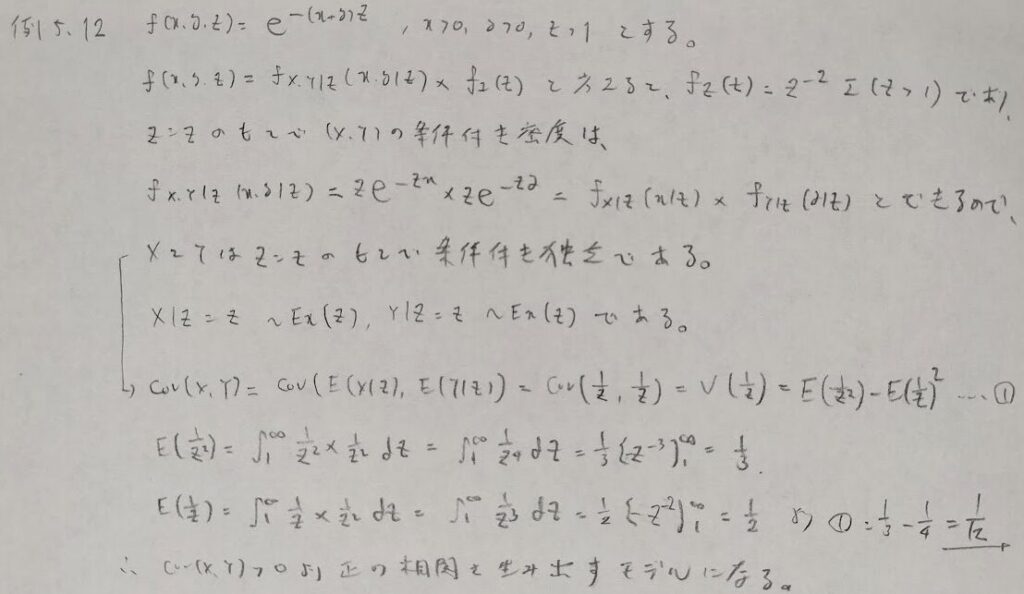 例5.12 f(x,y,z)= e^{-(x+y)z} , x>0, y>0, z>1 とする。
f(x,y,z) = f_{X,Y|Z}(x,y|z) × f_Z(z) と考えると、f_Z(z) = z^{-2} I(z>1) であり、
Z=z のもとで (X,Y) の条件付き密度は、
f_{X,Y|Z}(x,y|z) = ze^{-zx} × ze^{-zy} = f_{X|Z}(x|z) × f_{Y|Z}(y|z) とできるので、
XとYは Z=z のもとで 条件付き独立である。
X|Z=z ~Ex(z), Y|Z=z ~Ex(z) である。
↳ Cov(X,Y)= Cov(E(X|Z), E(Y|Z)) = Cov(1/z, 1/z) = V(1/z) = E(1/z²)-E(1/z)² … ①
E(1/z²)= ∫₁^∞ 1/z² × 1/z² dz = ∫₁^∞ 1/z⁴ dz = 1/3 [-z⁻³]₁^∞ = 1/3.
E(1/z)= ∫₁^∞ 1/z × 1/z² dz = ∫₁^∞ 1/z³ dz = 1/2 [-z⁻²]₁^∞ = 1/2 より ① = 1/3 - 1/4 = 1/12
∴ Cov(X,Y)>0 より 正の相関を生み出すモデルになる。